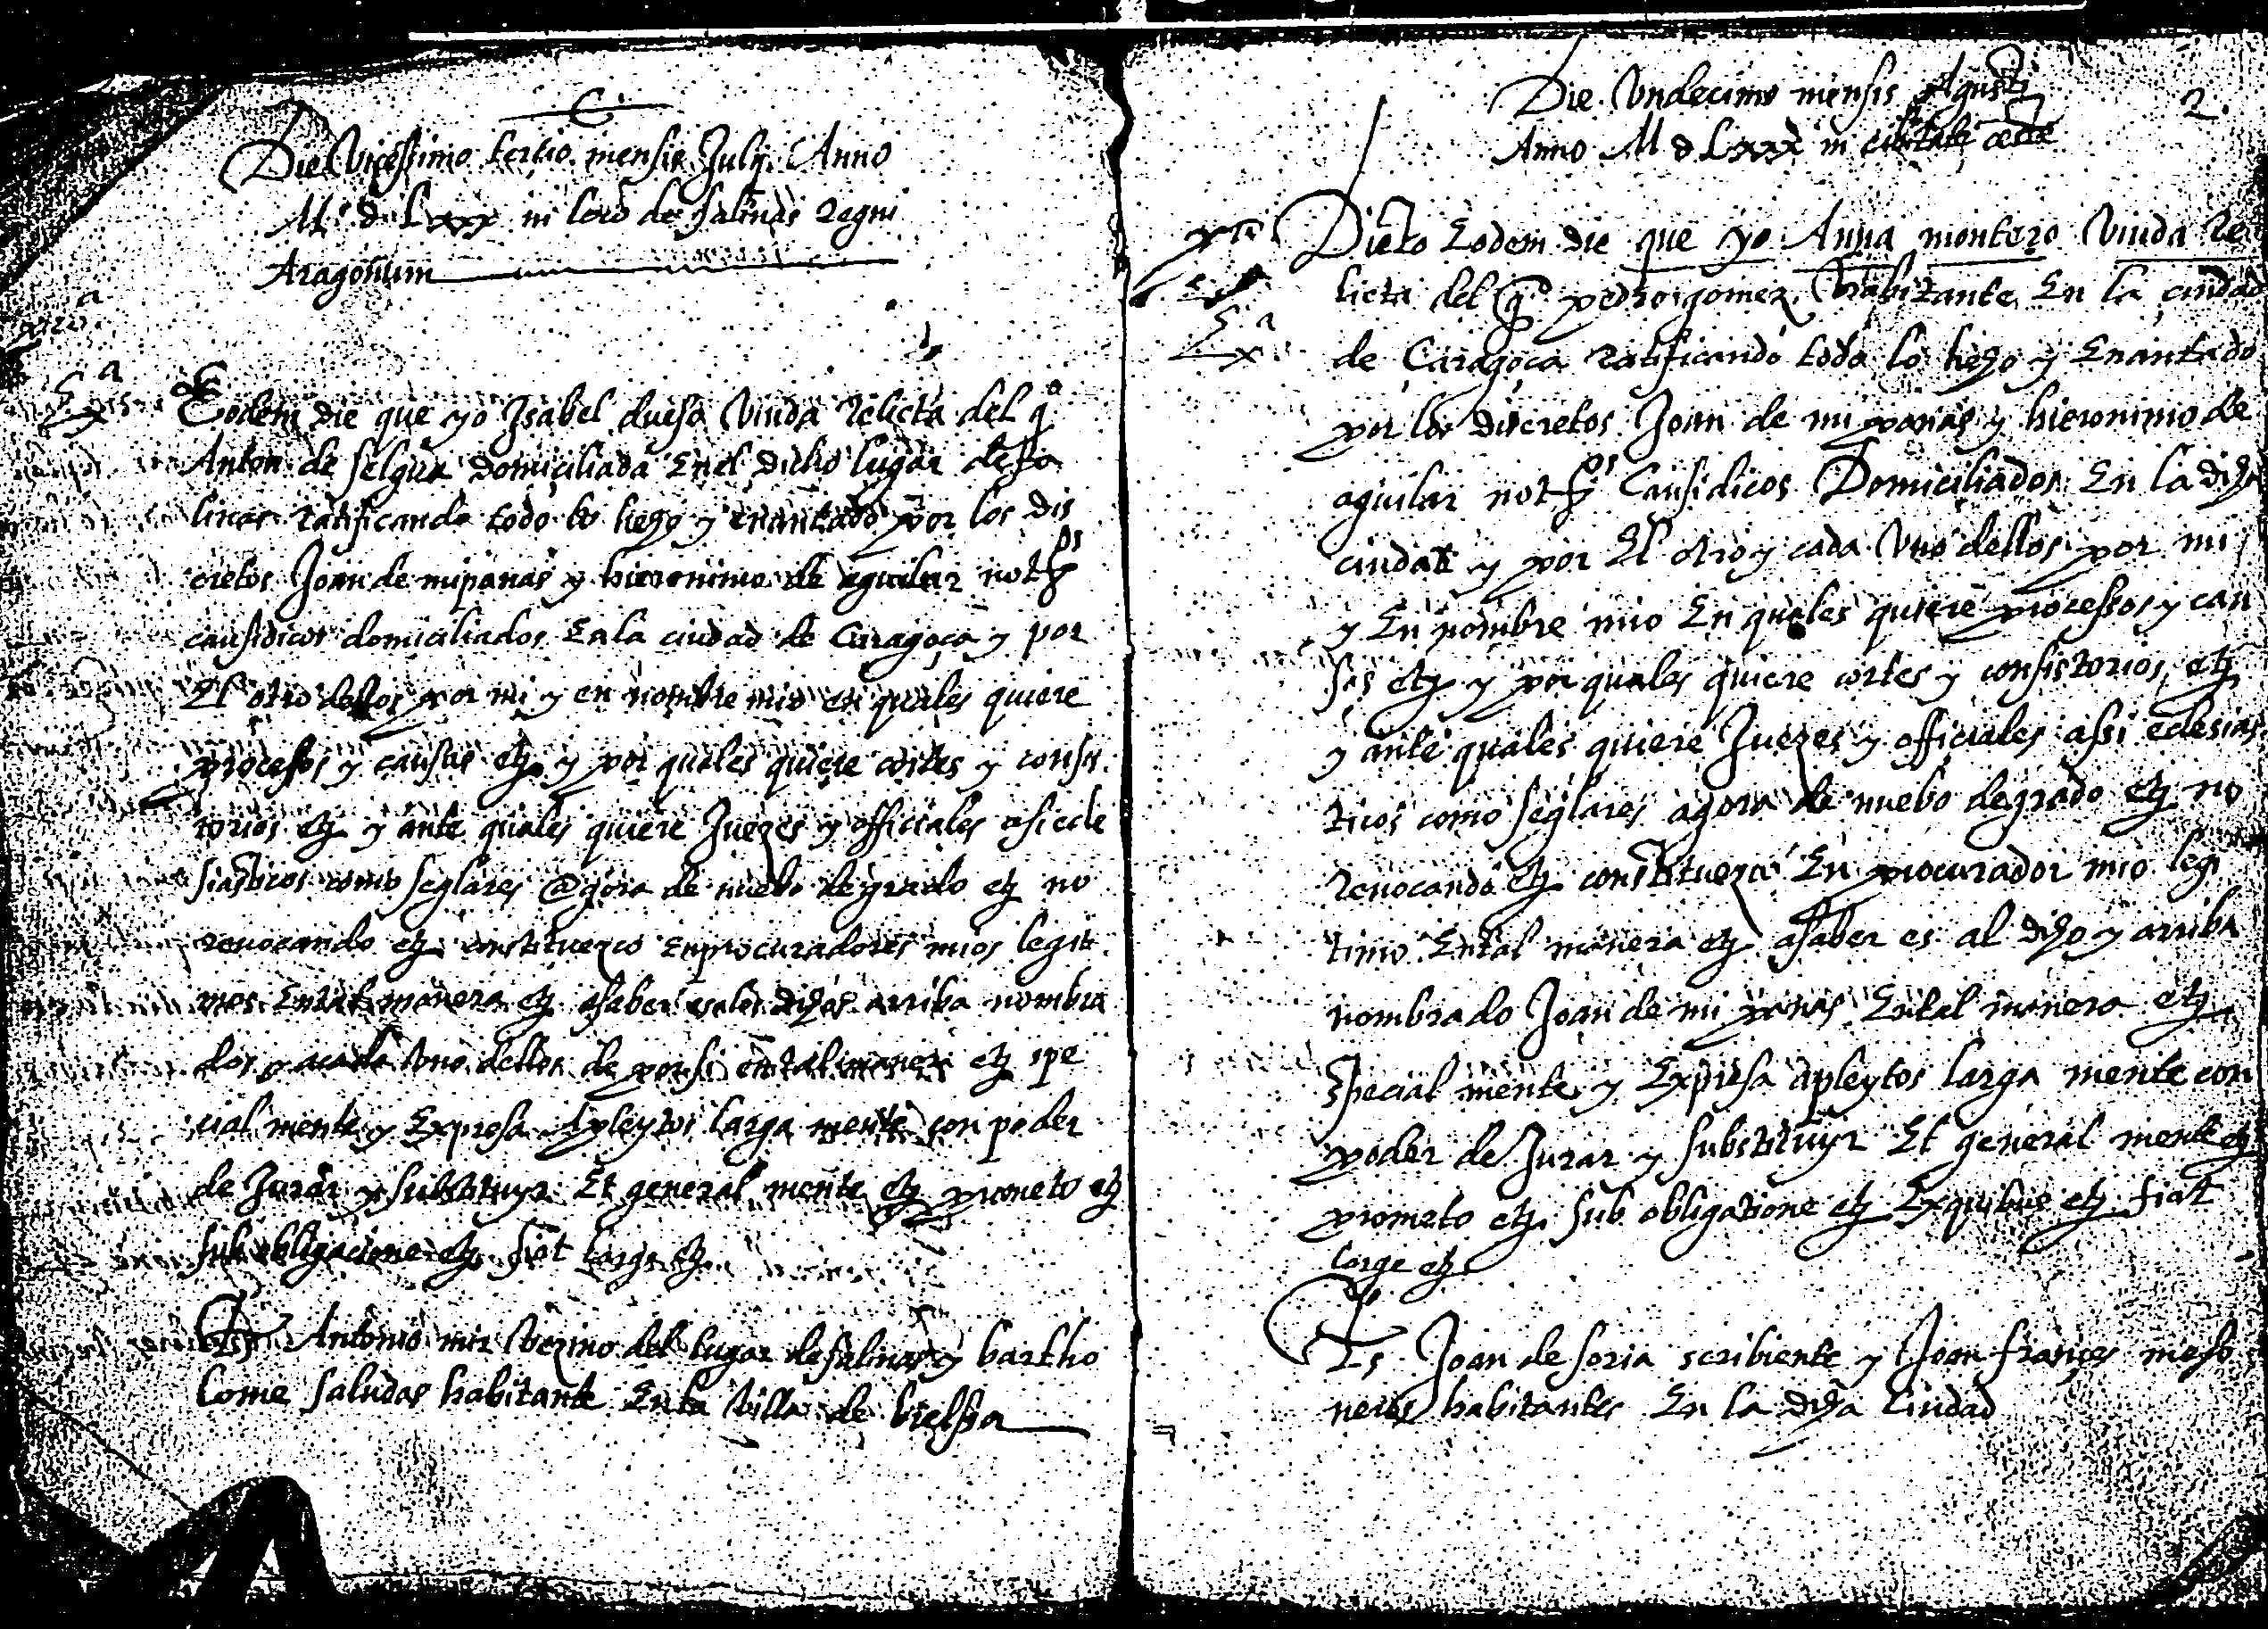 Die Vicessimo tertio mensis July Anno
M. d. Lxxx in loco de salinas Regni
Aragonum
Eodem die que yo Isabel duesa Viuda Relicta del qº
Anton de selgua domiciliada En el dicho lugar de sa
linas ratificando todo lo hecho y enantado por los dis
cretos Joan de mipanas y hieronimo de aguilar notros
causidicos domiciliados En la ciudad de Caragoça y por
El otro dellos por mi y en nombre mio en quales quiere
processos y causas etz y por quales quiere cortes y consis
torios etz y ante quales quiere Juezes y officiales asi ecle
siasticos como seglares Agora de nuebo de grado etz no
reuocando etz constituezco En procuradores mios legiti
mos En tal manera etz a saber es a los dichos arriba nombra
dos y a cada Vno dellos de por si en tal manera etz spe
cial mente y Expresa Apleytos larga mente con poder
de Jurar y substituyr Et general mente etz prometo etz
sub obligacione etz fiat large etz
Ts Antonio mir Vezino del lugar de salinas y bartho
lome saludas habitante En la Villa de bielssa
2.
Die Vndecimo mensis Agusti
Anno M d Lxxx in ciuitate
Dicto Eodem die que yo Anna montero Viuda Re
licta del qº pedro gomez habitante En la ciudad
de Caragoça ratificando todo lo hecho y Enantado
por los discretos Joan de mipanas y hieronimo de
aguilar notros Causidicos Domiciliados En la dicha
ciudat y por El otro y cada Vno dellos por mi
y En nombre mio En quales quiere processos y cau
sas etz y por quales quiere cortes y consistorios etz
y ante quales quiere Juezes y officiales assi eclesias
ticos como seglares agora de nuebo de grado etz no
reuocando etz constituezco En procurador mio legi
timo En tal manera etz a saber es al dicho y arriba
nombrado Joan de mipanas En tal manera etz
special mente y Expresa apleytos larga mente con
poder de Jurar y substituyr Et general mente etz
prometo etz sub obligatione etz Ex quibus etz fiat
large etz
Ts Joan de soria scribiente y Joan françes meso
neros habitantes En la dicha Ciudad